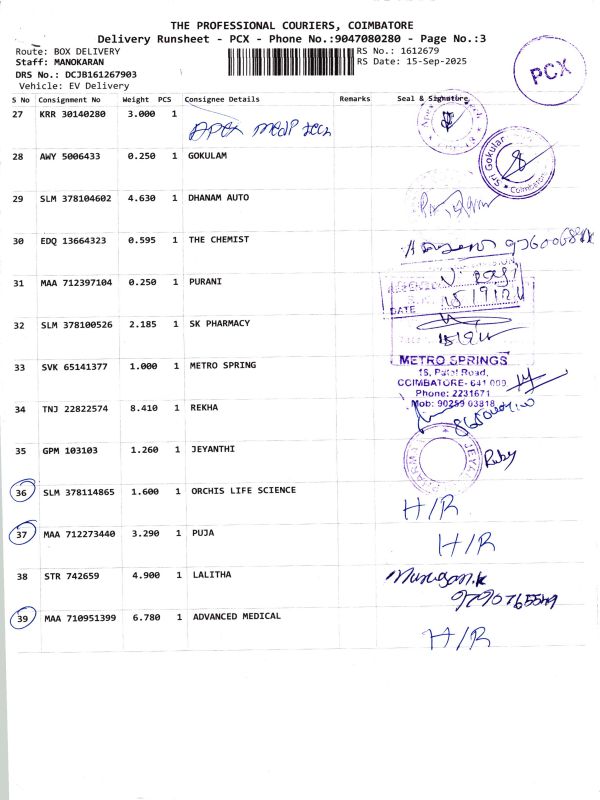 THE PROFESSIONAL COURIERS, COIMBATORE
Delivery Runsheet - PCX - Phone No.:9047080280 - Page No.:3
Route: BOX DELIVERY
RS No.: 1612679
Staff: MANOKARAN
RS Date: 15-Sep-2025
DRS No.: DCJB161267903
Vehicle: EV Delivery
PCX
S No Consignment No Weight PCS Consignee Details Remarks Seal & Signature
27 KRR 30140280 3.000 1 Apex Medp tech
28 AWY 5006433 0.250 1 GOKULAM
Sri Gokular Coimbatore
29 SLM 378104602 4.630 1 DHANAM AUTO
30 EDQ 13664323 0.595 1 THE CHEMIST
31 MAA 712397104 0.250 1 PURANI
DATE
32 SLM 378100526 2.185 1 SK PHARMACY
33 SVK 65141377 1.000 1 METRO SPRING
METRO SPRINGS
16, Patel Road,
COIMBATORE- 641 009
Phone: 2231671
Mob: 90259 03818
34 TNJ 22822574 8.410 1 REKHA
35 GPM 103103 1.260 1 JEYANTHI
Ruby
36 SLM 378114865 1.600 1 ORCHIS LIFE SCIENCE
H/R
37 MAA 712273440 3.290 1 PUJA
H/R
38 STR 742659 4.900 1 LALITHA Murugan.k
39 MAA 710951399 6.780 1 ADVANCED MEDICAL
H/R